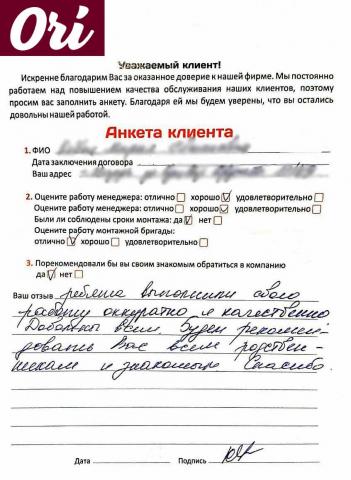 Ori
Уважаемый клиент!
Искренне благодарим Вас за оказанное доверие к нашей фирме. Мы постоянно
работаем над повышением качества обслуживания наших клиентов, поэтому
просим вас заполнить анкету. Благодаря ей мы будем уверены, что вы остались
довольны нашей работой.
Анкета клиента
1. ФИО
Дата заключения договора
Ваш адрес
2. Оцените работу менеджера: отлично хорошо удовлетворительно
Оцените работу менеджера: отлично хорошо удовлетворительно
Были ли соблюдены сроки монтажа: да нет
Оцените работу монтажной бригады:
отлично хорошо удовлетворительно
3. Порекомендовали бы вы своим знакомым обратиться в компанию
да нет
Ваш отзыв ребята выполнили свою
работу аккуратно и качественно
Довольны всем. Будем рекомен-
довать Вас всем родствен-
никам и знакомым. Спасибо.
Дата Подпись